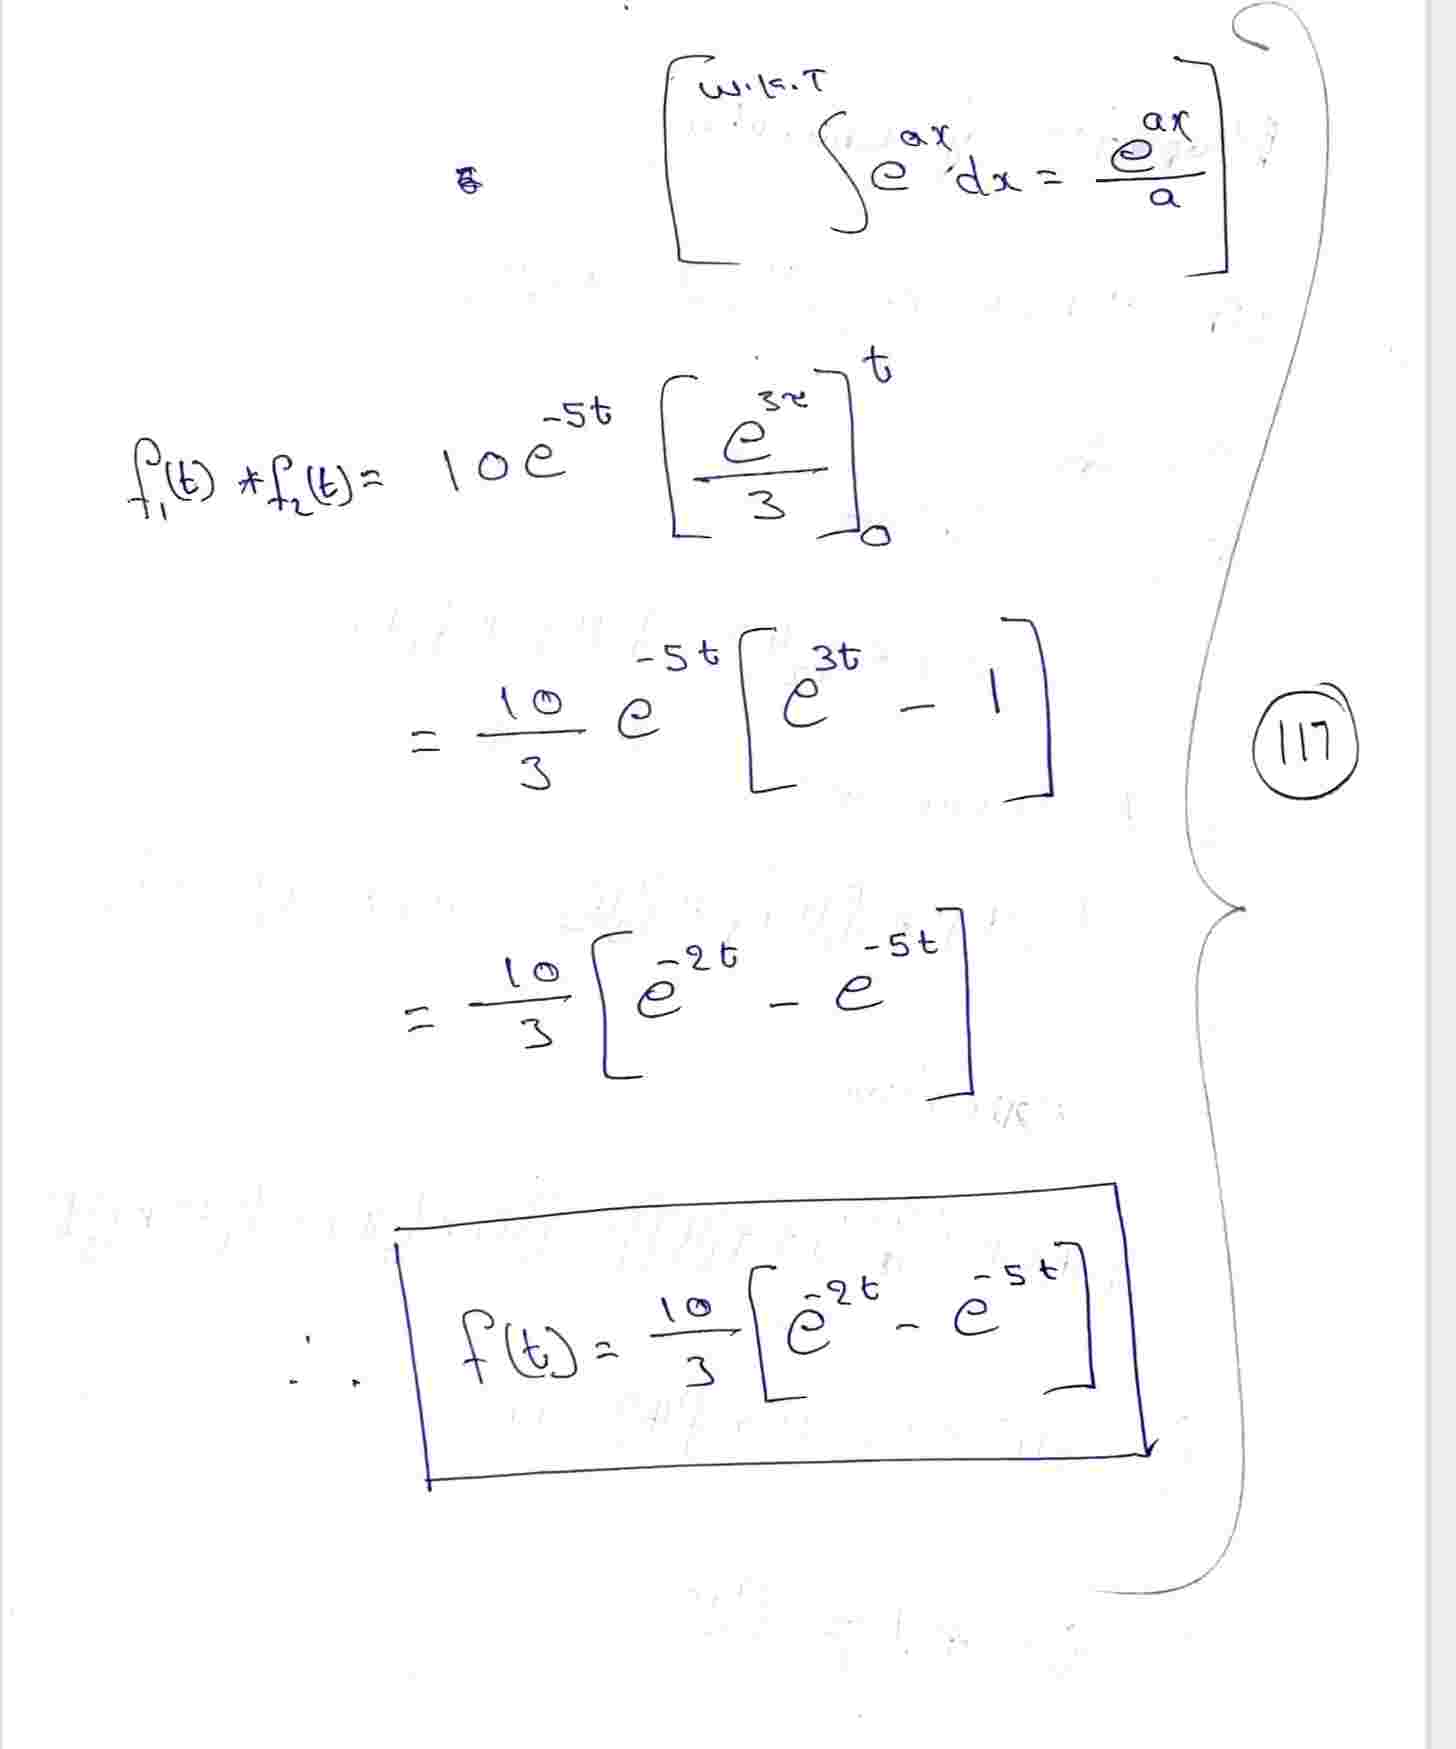 W.K.T
∫ e^{ax} dx = e^{ax}/a
f₁(t) * f₂(t) = 10 e^{-5t} [e^{3τ}/3]₀^t
= 10/3 e^{-5t} [e^{3t} - 1]
117
= 10/3 [e^{-2t} - e^{-5t}]
∴ f(t) = 10/3 [e^{-2t} - e^{-5t}]